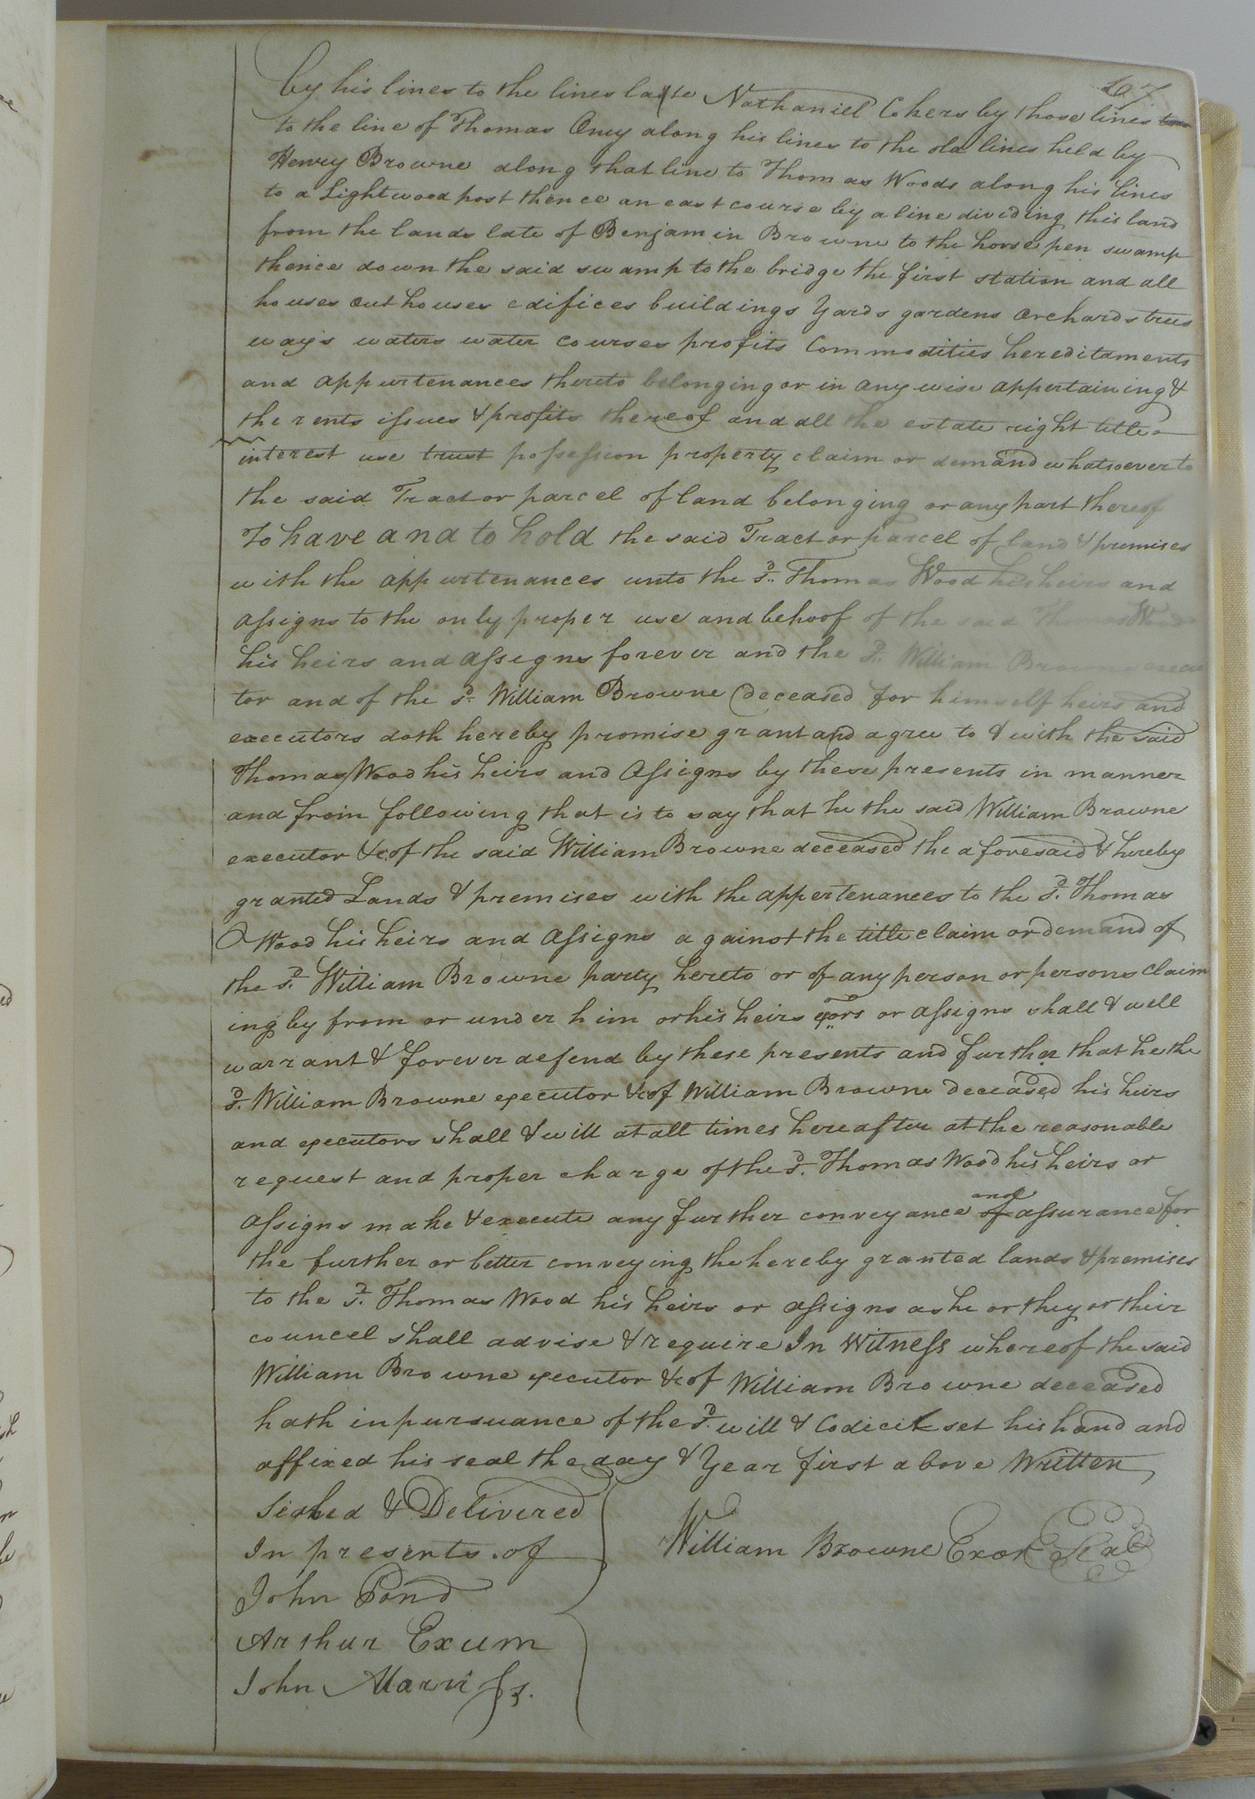 67
by his lines to the lines late Nathaniel Cokers by those lines
to the line of Thomas Oney along his lines to the old lines held by
Henry Browne along that line to Thomas Woods along his lines
to a Lightwood post thence an east course by a line dividing this land
from the lands late of Benjamin Browne to the horse pen swamp
thence down the said swamp to the bridge the first station and all
houses out houses edifices buildings Yards gardens Orchards trees
ways waters water courses profits Commodities hereditaments
and appurtenances thereto belonging or in any wise appertaining &
the rents issues & profits thereof and all the estate right title
interest use trust possession property claim or demand whatsoever to
the said Tract or parcel of land belonging or any part thereof
To have and to hold the said Tract or parcel of land & premises
with the appurtenances unto the sd. Thomas Wood his heirs and
assigns to the only proper use and behoof of the said Thomas Wood
his heirs and assigns forever and the sd. William Browne execu
tor and of the sd. William Browne deceased for himself heirs and
executors doth hereby promise grant and agree to & with the said
Thomas Wood his heirs and Assigns by these presents in manner
and from following that is to say that he the said William Browne
executor &c of the said William Browne deceased the aforesaid & hereby
granted Lands & premises with the appertenances to the sd. Thomas
Wood his heirs and Assigns against the title claim or demand of
the sd. William Browne party hereto or of any person or persons claim
ing by from or under him or his heirs exors or assigns shall & well
warrant & forever defend by these presents and further that he the
sd. William Browne executor &c of William Browne deceased his heirs
and executors shall & will at all times hereafter at the reasonable
request and proper charge of the sd. Thomas Wood his heirs or
assigns make & execute any further conveyance and assurance for
the further or better conveying the hereby granted lands & premises
to the sd. Thomas Wood his heirs or assigns as he or they or their
councel shall advise & require In Witness whereof the said
William Browne executor &c of William Browne deceased
hath in pursuance of the sd. will & Codicil set his hand and
affixed his seal the day & Year first above Written
Sealed & Delivered
In presents of
William Browne Exor Seal
John Pond
Arthur Exum
John Marriss.